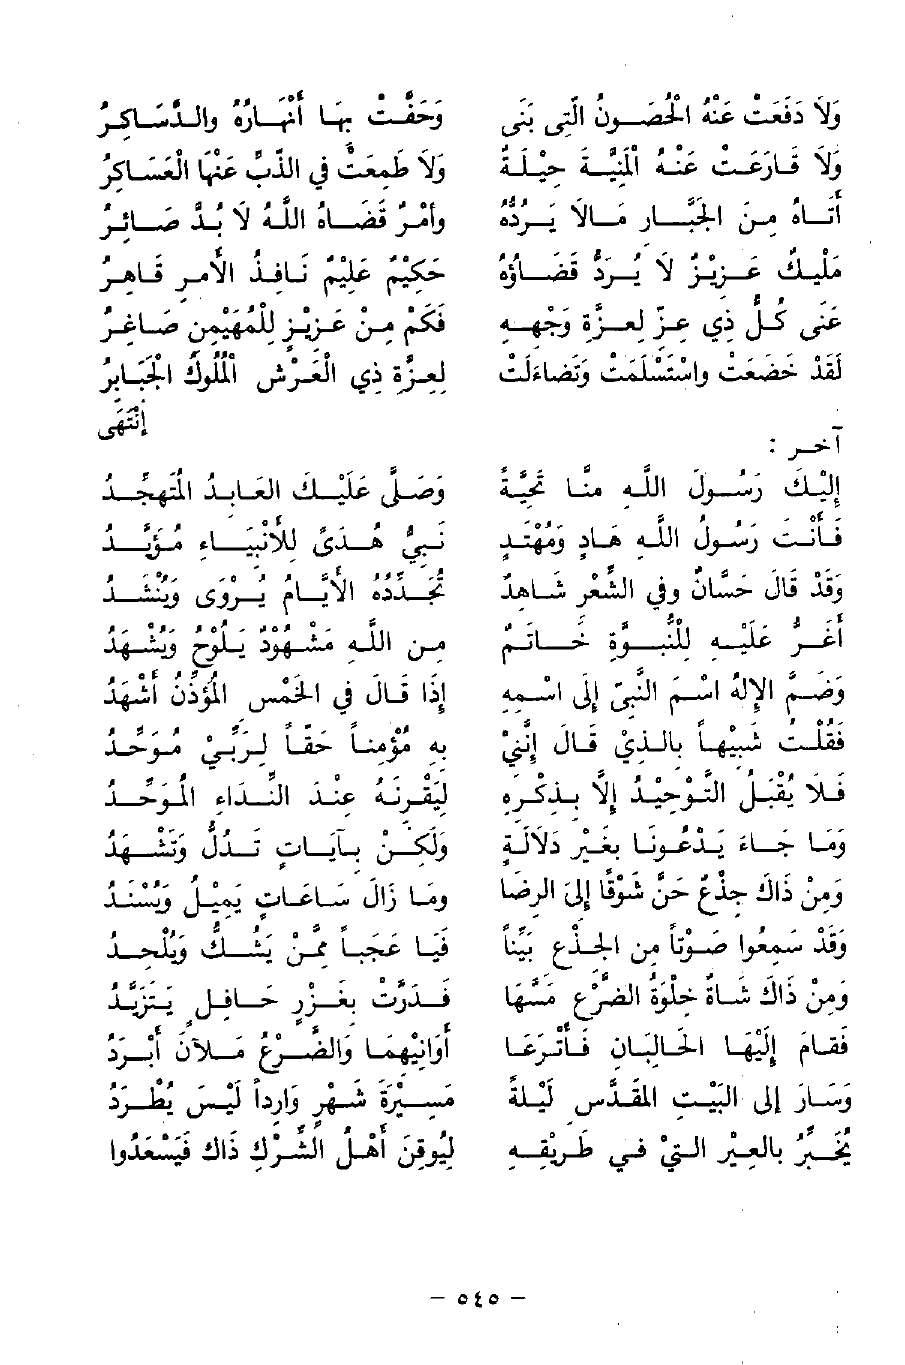 وَلَا دَفَعَتْ عَنْهُ الْحُصُونُ الَّتِي بَنَى وَحَفَّتْ بِهَا أَنْهَارُهُ وَالدَّسَاكِرُ
وَلَا قَارَعَتْ عَنْهُ الْمَنِيَّةَ حِيلَةٌ وَلَا طَمِعَتْ فِي الذَّبِّ عَنْهَا الْعَسَاكِرُ
أَتَاهُ مِنَ الْجَبَّارِ مَالَا يَرُدُّهُ وَأَمْرٌ قَضَاهُ اللَّهُ لَا بُدَّ صَائِرُ
مَلِيكٌ عَزِيزٌ لَا يُرَدُّ قَضَاؤُهُ حَكِيمٌ عَلِيمٌ نَافِذُ الْأَمْرِ قَاهِرُ
عَنَى كُلُّ ذِي عِزٍّ لِعِزَّةِ وَجْهِهِ فَكَمْ مِنْ عَزِيزٍ لِلْمُهَيْمِنِ صَاغِرُ
لَقَدْ خَضَعَتْ وَاسْتَسْلَمَتْ وَتَضَاءَلَتْ لِعِزَّةِ ذِي الْعَرْشِ الْمُلُوكُ الْجَبَابِرُ
إِنْتَهَى
آخر :
إِلَيْكَ رَسُولَ اللَّهِ مِنَّا تَحِيَّةً وَصَلَّى عَلَيْكَ الْعَابِدُ الْمُتَهَجِّدُ
فَأَنْتَ رَسُولُ اللَّهِ هَادٍ وَمُهْتَدٍ نَبِيُّ هُدًى لِلْأَنْبِيَاءِ مُؤَيَّدُ
وَقَدْ قَالَ حَسَّانُ وَفِي الشِّعْرِ شَاهِدٌ تُجَدِّدُهُ الْأَيَّامُ يُرْوَى وَيُنْشَدُ
أَغَرُّ عَلَيْهِ لِلنُّبُوَّةِ خَاتَمٌ مِنَ اللَّهِ مَشْهُودٌ يَلُوحُ وَيُشْهَدُ
وَضَمَّ الْإِلَهُ اسْمَ النَّبِيِّ إِلَى اسْمِهِ إِذَا قَالَ فِي الْخَمْسِ الْمُؤَذِّنُ أَشْهَدُ
فَقُلْتُ شَبِيهًا بِالَّذِي قَالَ إِنَّنِي بِهِ مُؤْمِنٌ حَقًّا لِرَبِّيَ مُوَحِّدُ
فَلَا يُقْبَلُ التَّوْحِيدُ إِلَّا بِذِكْرِهِ لِيَقْرِنَهُ عِنْدَ النِّدَاءِ الْمُوَحِّدُ
وَمَا جَاءَ يَدْعُونَا بِغَيْرِ دَلَالَةٍ وَلَكِنْ بِآيَاتٍ تَدُلُّ وَتَشْهَدُ
وَمِنْ ذَاكَ جِذْعٌ حَنَّ شَوْقًا إِلَى الرِّضَا وَمَا زَالَ سَاعَاتٍ يَمِيلُ وَيُسْنَدُ
وَقَدْ سَمِعُوا صَوْتًا مِنَ الْجِذْعِ بَيِّنًا فَيَا عَجَبًا مِمَّنْ يَشُكُّ وَيُلْحِدُ
وَمِنْ ذَاكَ شَاةٌ خِلْوَةُ الضَّرْعِ مَسَّهَا فَدَرَّتْ بِغَزْرٍ حَافِلٍ يَتَزَيَّدُ
فَقَامَ إِلَيْهَا الْحَالِبَانِ فَأَتْرَعَا أَوَانِيَهُمَا وَالضَّرْعُ مَلْآنُ أَبْرَدُ
وَسَارَ إِلَى الْبَيْتِ الْمُقَدَّسِ لَيْلَةً مَسِيرَةَ شَهْرٍ وَارِدًا لَيْسَ يُطْرَدُ
يُخَبِّرُ بِالْعِيرِ الَّتِي فِي طَرِيقِهِ لِيُوقِنَ أَهْلُ الشِّرْكِ ذَاكَ فَيَسْعَدُوا
– ٥٤٥ –